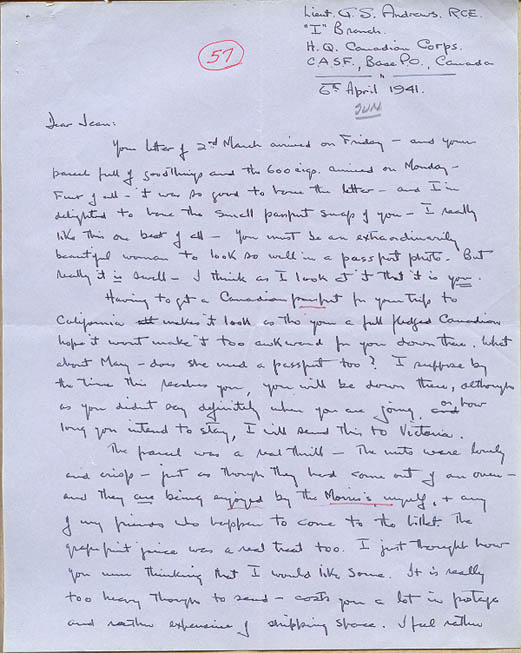 Lieut. G. S. Andrews. RCE.
"I" Branch.
H.Q. Canadian Corps.
C.A.S.F., Base P.O., Canada
57
6th April 1941.
SUN
Dear Jean:
Your letter of 2nd March arrived on Friday - and your
parcel full of good things and the 600 cigs. arrived on Monday -
First of all - it was so good to have the letter - and I'm
delighted to have the small passport snap of you - I really
like this one best of all - You must be an extraordinarily
beautiful woman to look so well in a passport photo. But
really it is swell - I think as I look at it that it is you.
Having to get a Canadian passport for your trip to
California makes it look as tho you a full fledged Canadian
hope it wont make it too awkward for you down there. What
about Mary - does she need a passport too? I suppose by
the time this reaches you, you will be down there, although
as you didnt say definitely when you are going, or how
long you intend to stay, I will send this to Victoria.
The parcel was a real thrill - The nuts were lovely
and crisp - just as though they had come out of an oven -
and they are being enjoyed by the Morris's, myself, + any
of my friends who happen to come to the billet. The
grapefruit juice was a real treat too. I just thought how
you were thinking that I would like some. It is really
too heavy though to send - costs you a lot in postage
and rather expensive of shipping space. I feel rather